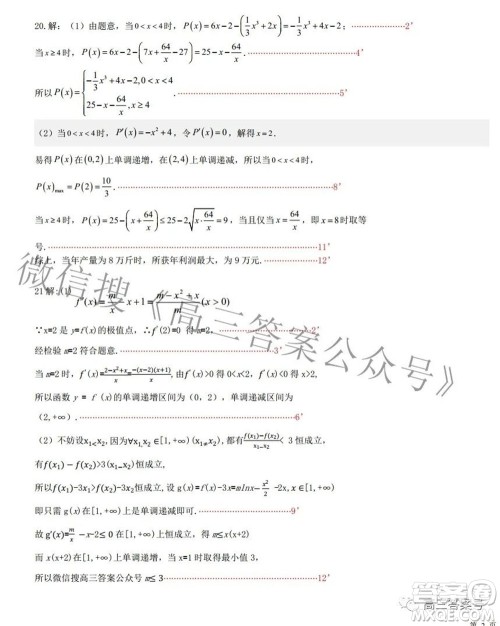 20.解：（1）由题意，当0<x<4时，P(x)=6x-2-(1/3 x³+2x)=-1/3 x³+4x-2； ……2′
当x≥4时，P(x)=6x-2-(7x+64/x-27)=25-x-64/x. ……4′
所以P(x)={-1/3 x³+4x-2,0<x<4
25-x-64/x,x≥4 . ……5′
（2）当0<x<4时，P′(x)=-x²+4，令P′(x)=0，解得x=2.
易得P(x)在(0,2)上单调递增，在(2,4)上单调递减，所以当0<x<4时，
P(x)max=P(2)=10/3. ……8′
当x≥4时，P(x)=25-(x+64/x)≤25-2√(x·64/x)=9，当且仅当x=64/x，即x=8时取等
号. ……11′
综上，当年产量为8万斤时，所获年利润最大，为9万元. ……12′
21解:(1)
f′(x)=m/x-x+1=(m-x²+x)/x(x>0)
∵x=2是y=f(x)的极值点，∴f′(2)=0 得m=2， ……2′
经检验m=2符合题意. ……3′
当m=2时，f′(x)=(2-x²+x)/x=-(x-2)(x+1)/x,由f′(x)>0得0<x<2，f′(x)<0得x>2,
所以函数y = f (x)的单调递增区间为（0，2），单调递减区间为
(2,+∞). ……6′
（2）不妨设x₁<x₂,因为∀x₁,x₂∈[1,+∞)(x₁≠x₂),都有(f(x₁)-f(x₂))/(x₁-x₂)< 3恒成立，
有f(x₁)-f(x₂)>3(x₁-x₂)恒成立，
所以f(x₁)-3x₁>f(x₂)-3x₂恒成立，设g(x)=f(x)-3x=mlnx-x²/2 -2x,x∈[1,+∞)
即只需g(x)在[1,+∞)上是单调递减即可. ……9′
故g′(x)=m/x-x-2≤0在[1,+∞)上恒成立，得m≤x(x+2)在[1,+∞)上恒成立.
而x(x+2)在[1,+∞)上单调递增，当x=1时可得最小值3，
所以微信搜高三答案公众号m≤3 ……12′
微信搜《高三答案公众号》
高三答案号